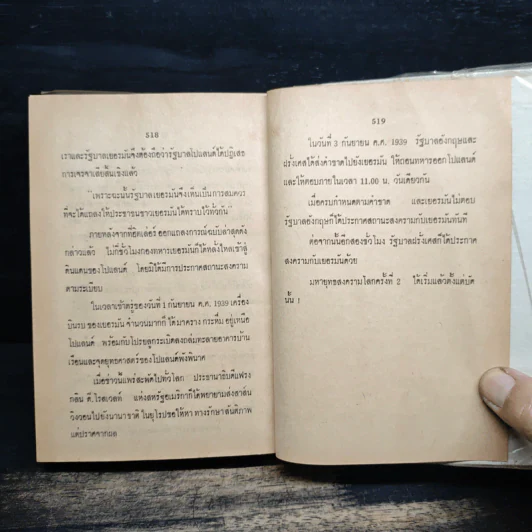 518
เราและรัฐบาลเยอรมันจึงต้องถือว่ารัฐบาลโปแลนด์ได้ปฏิเสธ
การเจรจาเสียสิ้นเชิงแล้ว
"เพราะฉะนั้นรัฐบาลเยอรมันจึงเห็นเป็นการสมควร
ที่จะได้แถลงให้ประชาชนชาวเยอรมันได้ทราบไว้ทั่วกัน"
ภายหลังจากที่ฮิตเล่อร์ ออกแถลงการณ์ฉบับล่าสุดดัง
กล่าวแล้ว ไม่กี่ชั่วโมงกองทหารเยอรมันก็ได้หลั่งไหลเข้าสู่
ดินแดนของโปแลนด์ โดยมิได้มีการประกาศสถานะสงคราม
ตามระเบียบ
ในเวลาเช้าตรู่ของวันที่ 1 กันยายน ค.ศ. 1939 เครื่อง
บินรบ ของเยอรมัน จำนวนมากก็ ได้มาคราง กระหึ่ม อยู่เหนือ
โปแลนด์ พร้อมกับโปรยลูกระเบิดลงถล่มทะลายอาคารบ้าน
เรือนและจุดยุทธศาสตร์ของโปแลนด์พังพินาศ
เมื่อข่าวนี้แพร่สะพัดไปทั่วโลก ประธานาธิบดีแฟรง
กลิน ดี. โรสเวลท์ แห่งสหรัฐอเมริกาก็ได้พยายามส่งสาส์น
วิงวอนไปยังนานาชาติ ในยุโรปขอให้หา ทางรักษาสันติภาพ
แต่ปราศจากผล
519
ในวันที่ 3 กันยายน ค.ศ. 1939 รัฐบาลอังกฤษและ
ฝรั่งเศสได้ส่งคำขาดไปยังเยอรมัน ให้ถอนทหารออกโปแลนด์
และให้ตอบภายในเวลา 11.00 น. วันเดียวกัน
เมื่อครบกำหนดตามคำขาด และเยอรมันไม่ตอบ
รัฐบาลอังกฤษก็ได้ประกาศสถานะสงครามกับเยอรมันทันที
ต่อจากนั้นอีกสองชั่วโมง รัฐบาลฝรั่งเศสก็ได้ประกาศ
สงครามกับเยอรมันด้วย
มหายุทธสงครามโลกครั้งที่ 2 ได้เริ่มแล้วตั้งแต่บัด
นั้น !